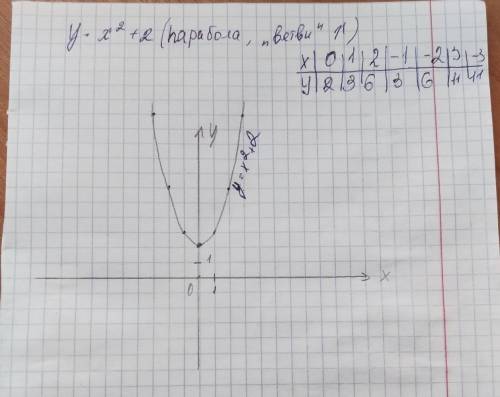 y = x²+2 (парабола, „ветви" ↑)
x | 0 | 1 | 2 | -1 | -2 | 3 | -3
y | 2 | 3 | 6 | 3 | 6 | 11 | 11
y
y = x²+2
1
x
0 1